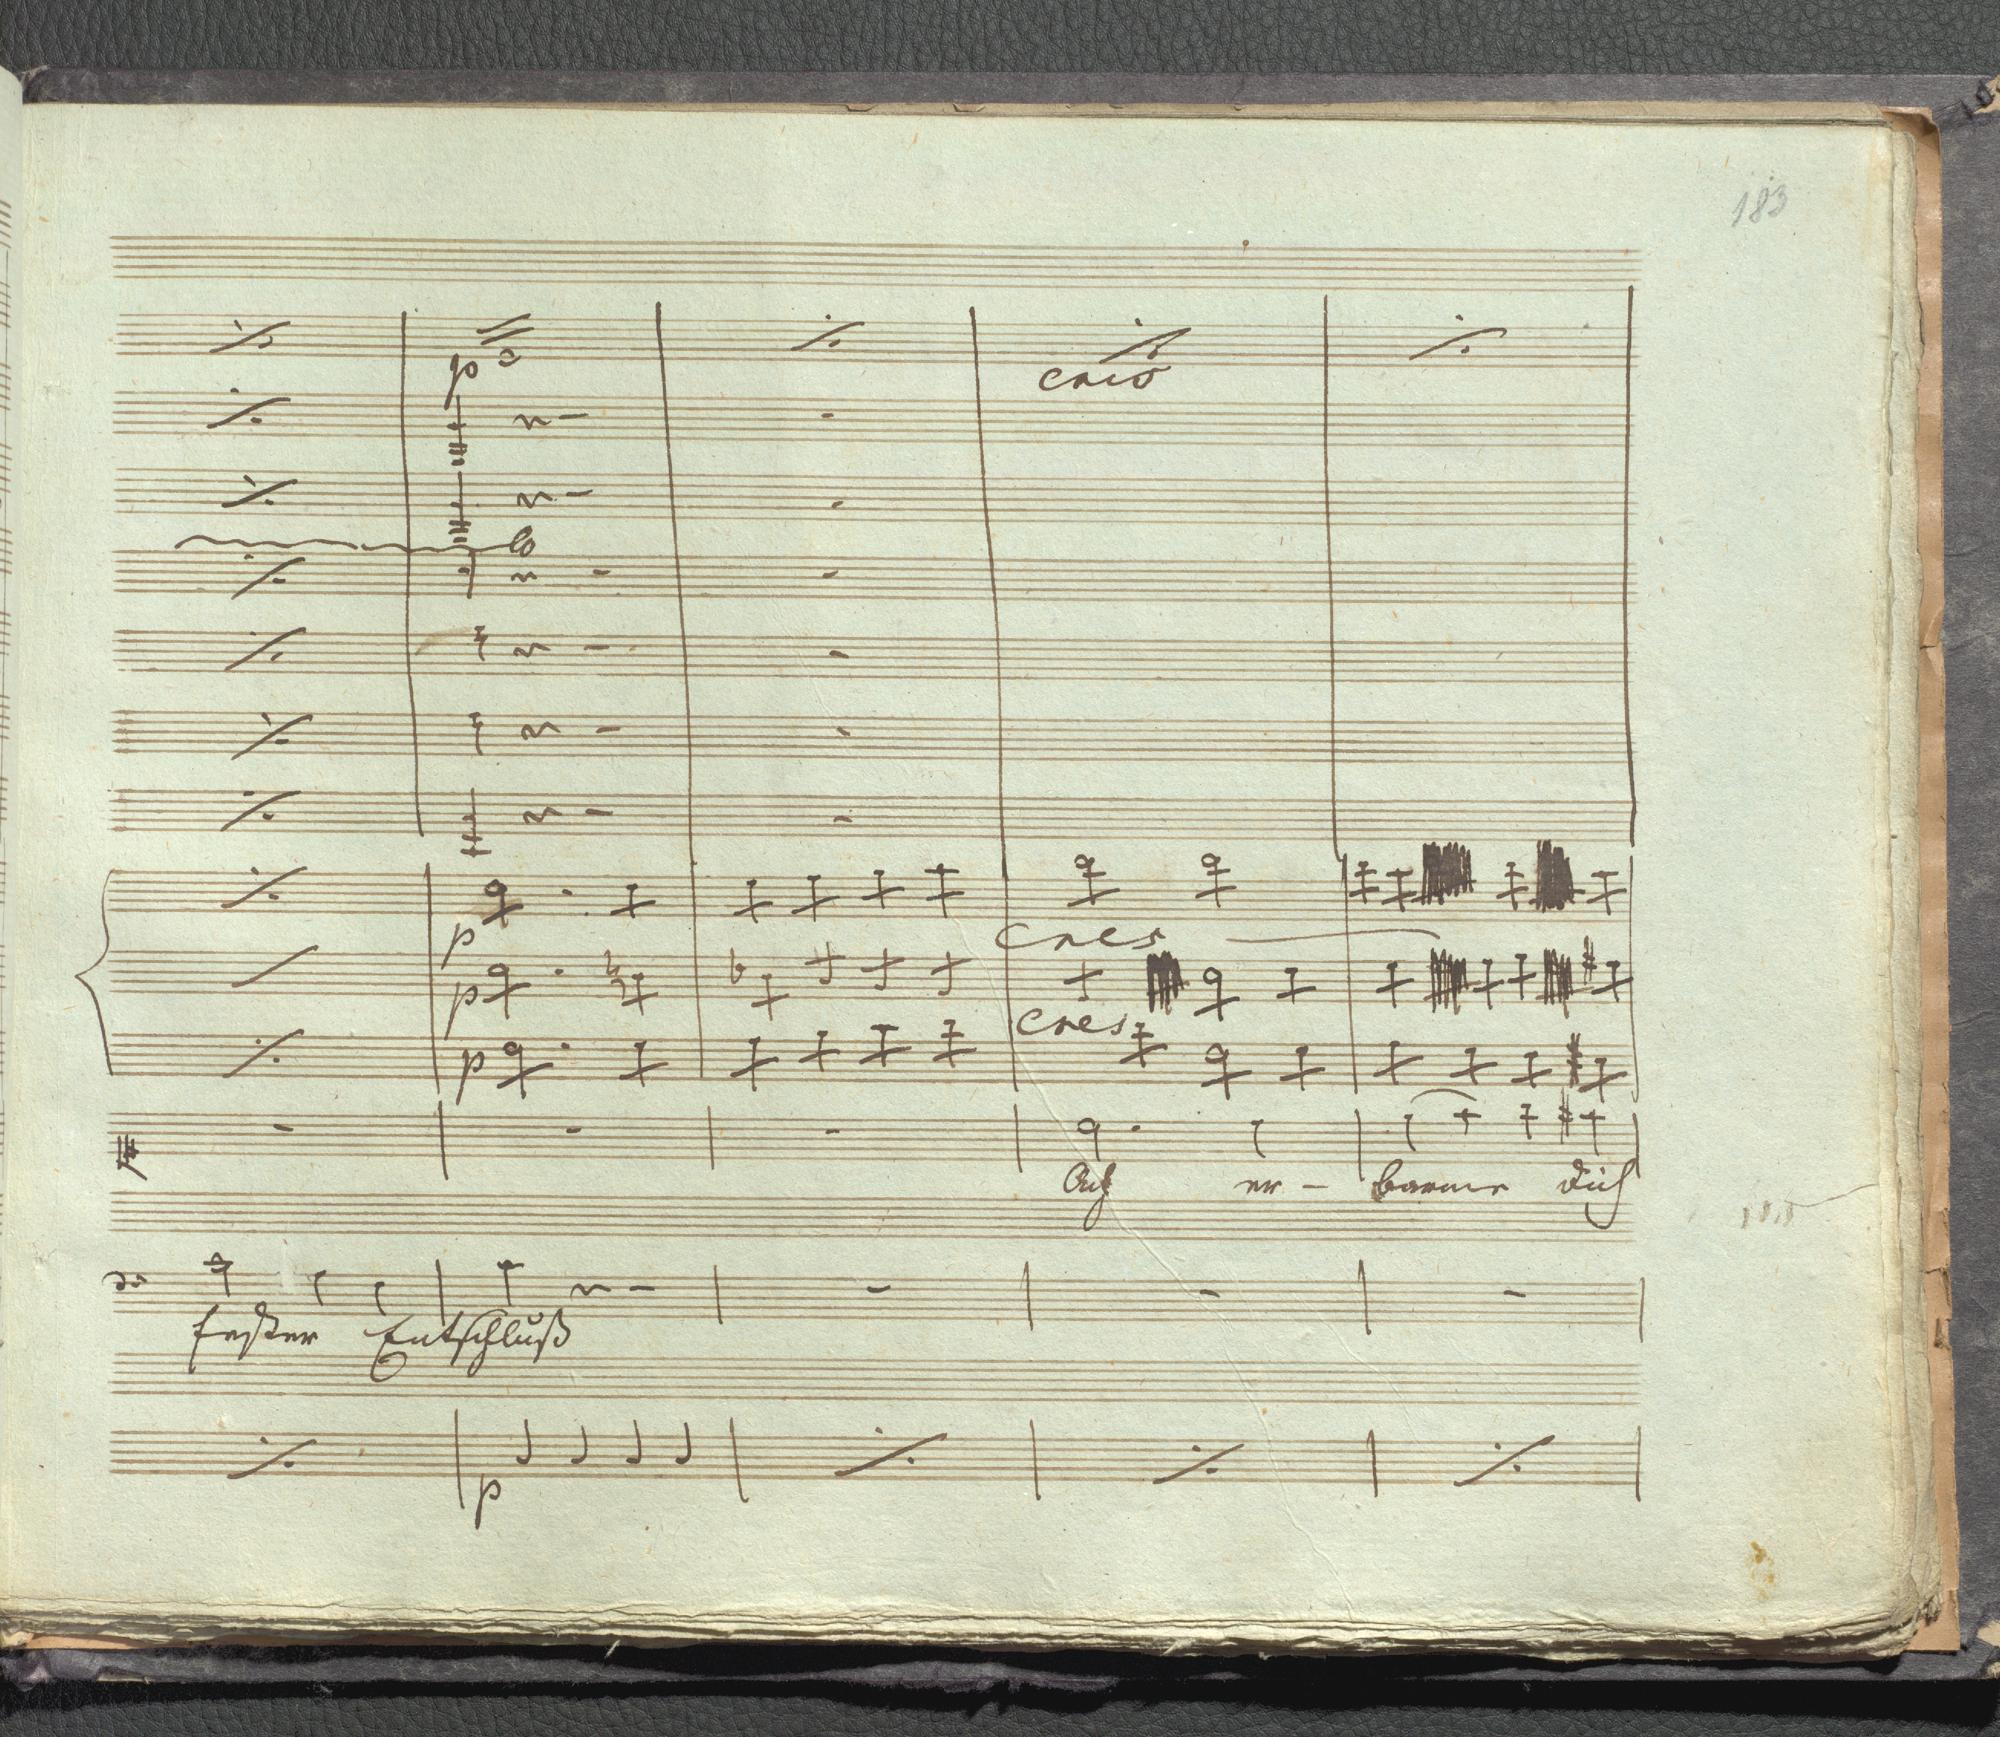 183
p
cres
p
cres
p
cres
p
Ach er - barme dich
fester Entschluß
p